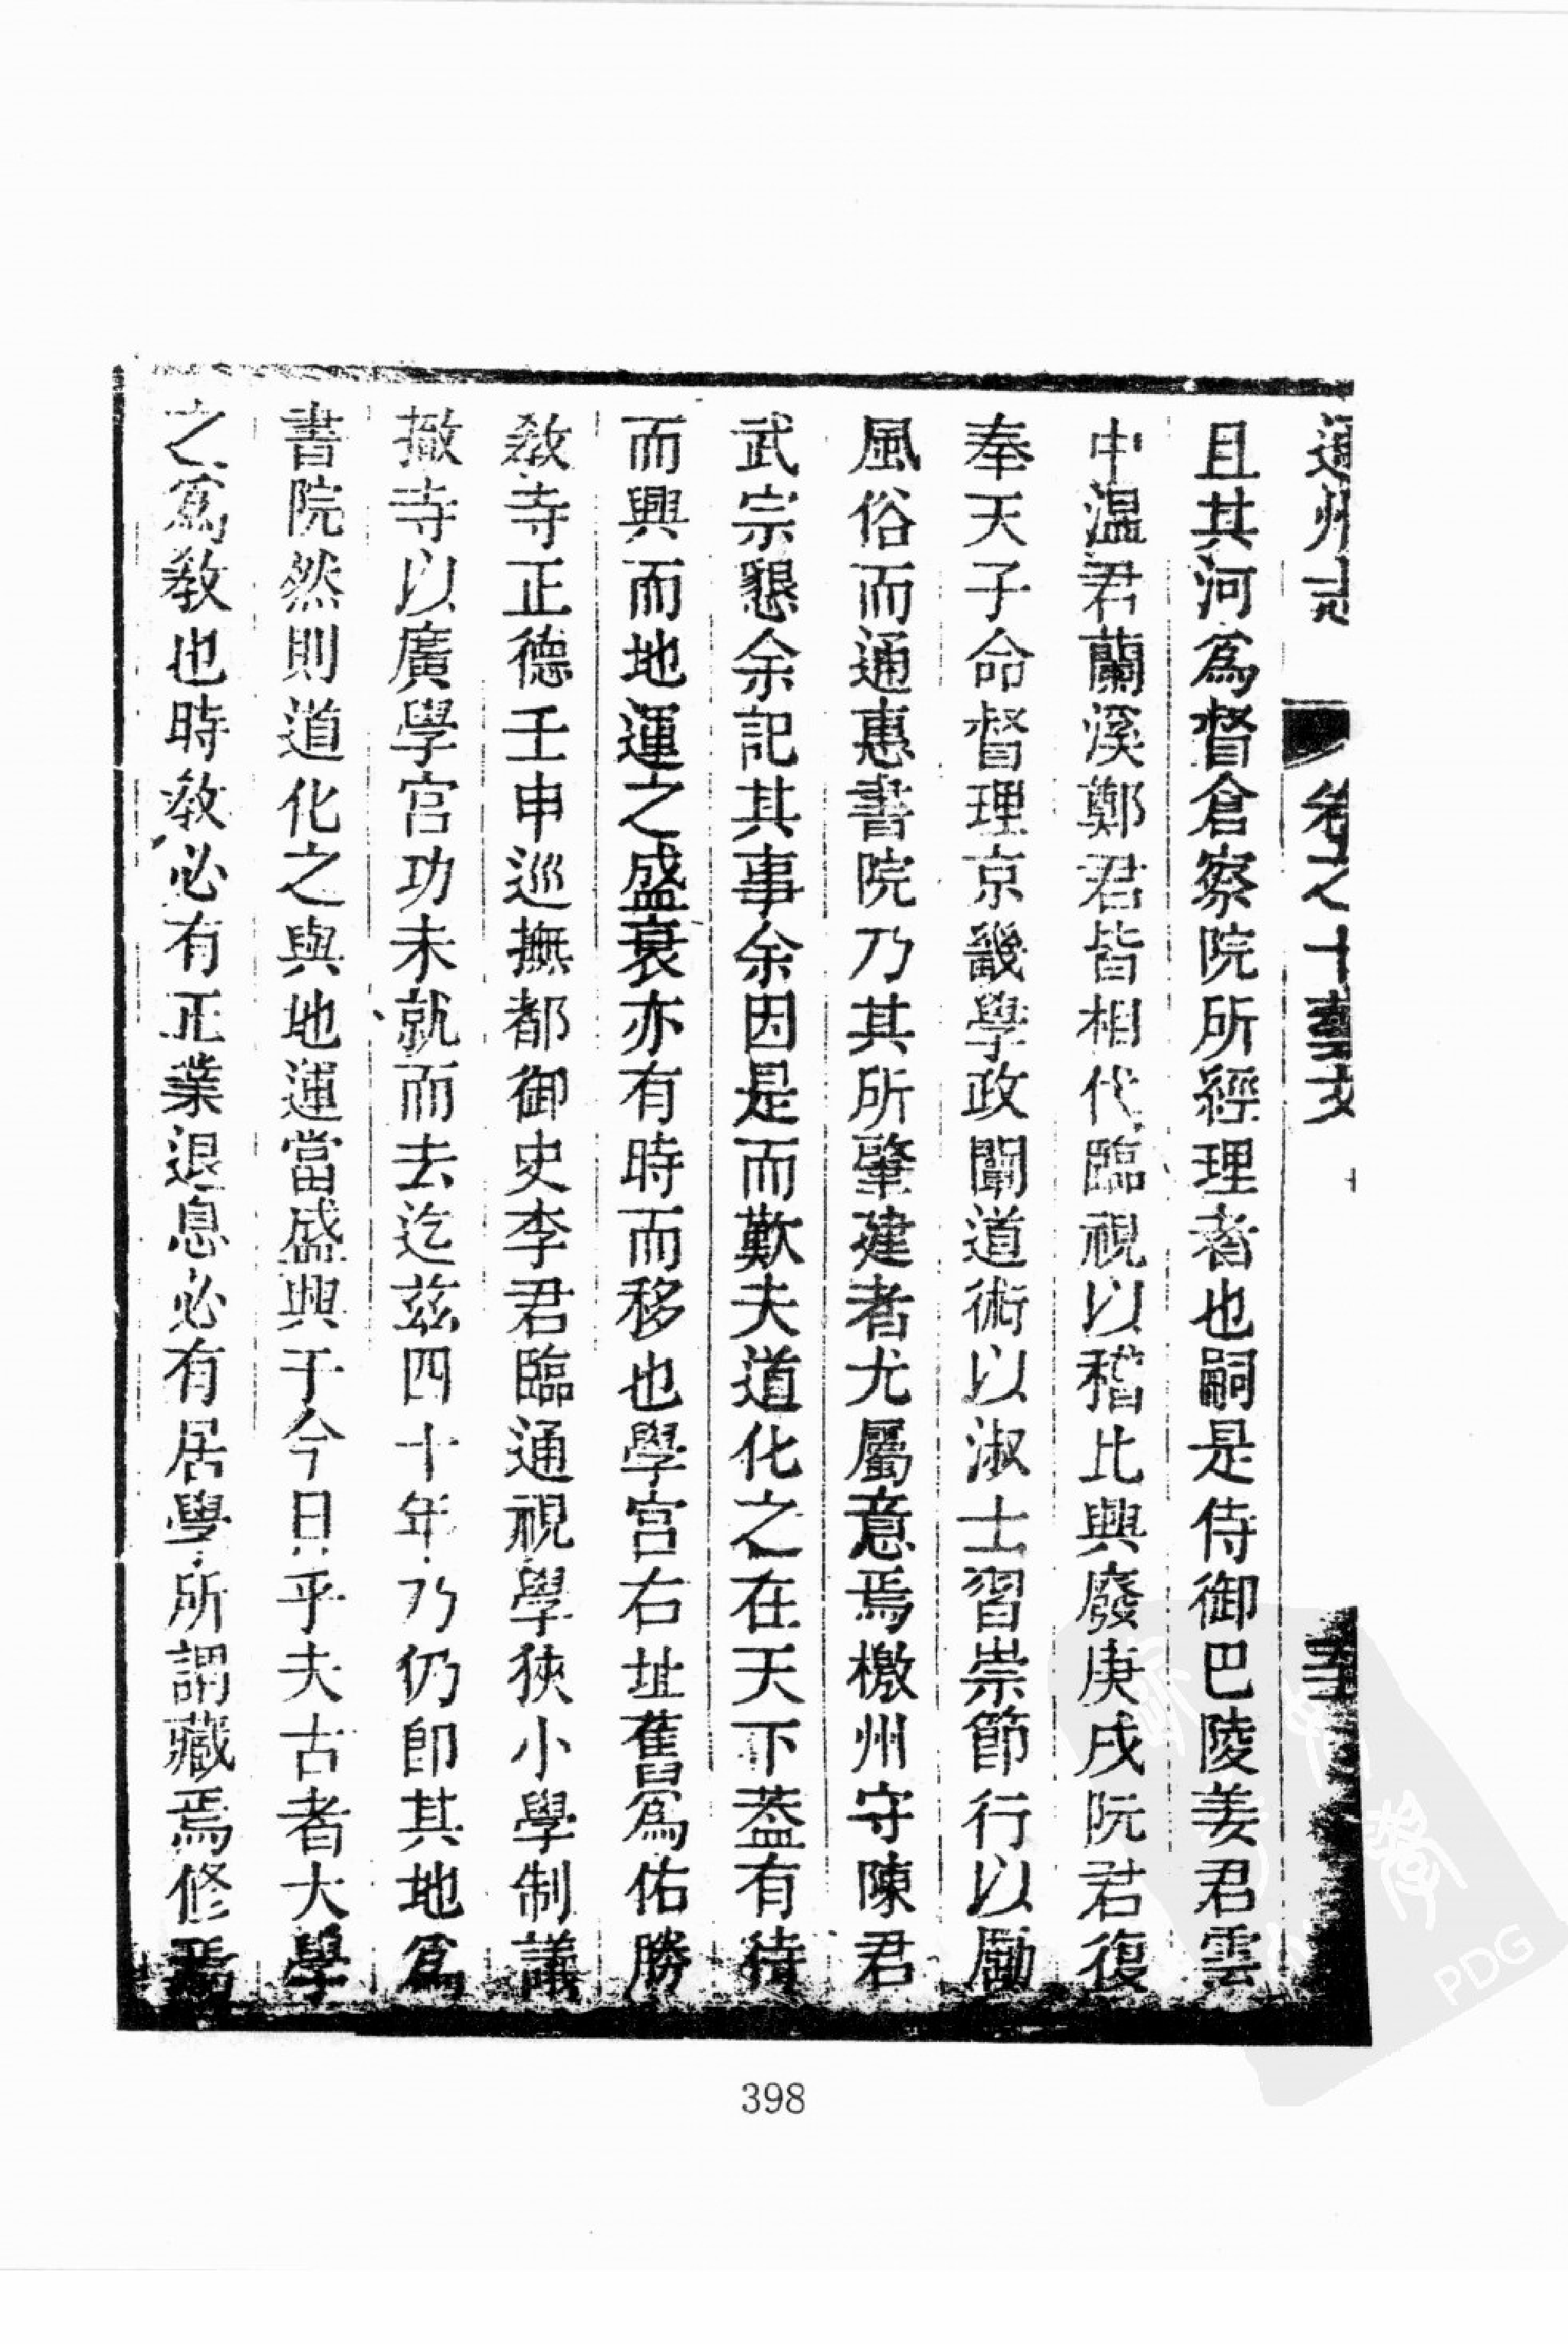 通州志 卷之十藝文
且其河爲督倉察院所經理者也嗣是侍御巴陵姜君雲
中温君蘭溪鄭君皆相代臨視以稽比興廢庚戌阮君復
奉天子命督理京畿學政闡道術以淑士習崇節行以勵
風俗而通惠書院乃其所肇建者尤屬意焉檄州守陳君
武宗懇余記其事余因是而歎夫道化之在天下葢有待
而興而地運之盛衰亦有時而移也學宫右址舊爲佑勝
教寺正德壬申巡撫都御史李君臨通視學狹小學制議
撤寺以廣學宫功未就而去迄兹四十年乃仍卽其地爲
書院然則道化之與地運當盛興于今日乎夫古者大學
之爲教也時教必有正業退息必有居學所謂藏焉修焉
398
PDG